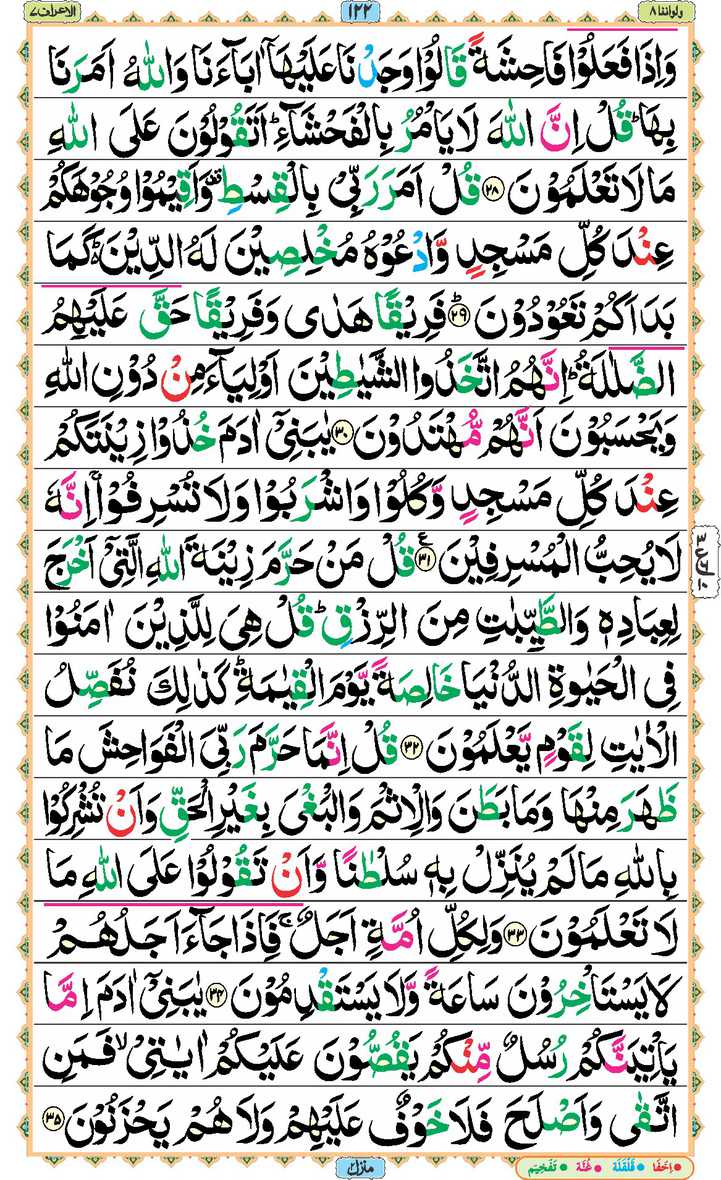 ولواننا ۸ ۱۲۲ الاعراف ۷
وَاِذَا فَعَلُوۡا فَاحِشَةً قَالُوۡا وَجَدۡنَا عَلَيۡهَاۤ اٰبَآءَنَا وَاللّٰهُ اَمَرَنَا
بِهَا ؕ قُلۡ اِنَّ اللّٰهَ لَا يَاۡمُرُ بِالۡفَحۡشَآءِ ؕ اَتَقُوۡلُوۡنَ عَلَى اللّٰهِ
مَا لَا تَعۡلَمُوۡنَ ۲۸ قُلۡ اَمَرَ رَبِّىۡ بِالۡقِسۡطِ وَاَقِيۡمُوۡا وُجُوۡهَكُمۡ
عِنۡدَ كُلِّ مَسۡجِدٍ وَّادۡعُوۡهُ مُخۡلِصِيۡنَ لَهُ الدِّيۡنَ ؕ كَمَا
بَدَاَكُمۡ تَعُوۡدُوۡنَ ؕ ۲۹ فَرِيۡقًا هَدٰى وَفَرِيۡقًا حَقَّ عَلَيۡهِمُ
الضَّلٰلَةُ ؕ اِنَّهُمُ اتَّخَذُوا الشَّيٰطِيۡنَ اَوۡلِيَآءَ مِنۡ دُوۡنِ اللّٰهِ
وَيَحۡسَبُوۡنَ اَنَّهُمۡ مُّهۡتَدُوۡنَ ۳۰ يٰبَنِىۡۤ اٰدَمَ خُذُوۡا زِيۡنَتَكُمۡ
عِنۡدَ كُلِّ مَسۡجِدٍ وَّكُلُوۡا وَاشۡرَبُوۡا وَلَا تُسۡرِفُوۡا ۚ اِنَّهٗ
لَا يُحِبُّ الۡمُسۡرِفِيۡنَ ۳۱ ع قُلۡ مَنۡ حَرَّمَ زِيۡنَةَ اللّٰهِ الَّتِىۡۤ اَخۡرَجَ
لِعِبَادِهٖ وَالطَّيِّبٰتِ مِنَ الرِّزۡقِ ؕ قُلۡ هِىَ لِلَّذِيۡنَ اٰمَنُوۡا
فِى الۡحَيٰوةِ الدُّنۡيَا خَالِصَةً يَّوۡمَ الۡقِيٰمَةِ ؕ كَذٰلِكَ نُفَصِّلُ
الۡاٰيٰتِ لِقَوۡمٍ يَّعۡلَمُوۡنَ ۳۲ قُلۡ اِنَّمَا حَرَّمَ رَبِّىَ الۡفَوَاحِشَ مَا
ظَهَرَ مِنۡهَا وَمَا بَطَنَ وَالۡاِثۡمَ وَالۡبَغۡىَ بِغَيۡرِ الۡحَقِّ وَاَنۡ تُشۡرِكُوۡا
بِاللّٰهِ مَا لَمۡ يُنَزِّلۡ بِهٖ سُلۡطٰنًا وَّاَنۡ تَقُوۡلُوۡا عَلَى اللّٰهِ مَا
لَا تَعۡلَمُوۡنَ ۳۳ وَلِكُلِّ اُمَّةٍ اَجَلٌ ۚ فَاِذَا جَآءَ اَجَلُهُمۡ
لَا يَسۡتَاۡخِرُوۡنَ سَاعَةً وَّلَا يَسۡتَقۡدِمُوۡنَ ۳۴ يٰبَنِىۡۤ اٰدَمَ اِمَّا
يَاۡتِيَنَّكُمۡ رُسُلٌ مِّنۡكُمۡ يَقُصُّوۡنَ عَلَيۡكُمۡ اٰيٰتِىۡ ۙ فَمَنِ
اتَّقٰى وَاَصۡلَحَ فَلَا خَوۡفٌ عَلَيۡهِمۡ وَلَا هُمۡ يَحۡزَنُوۡنَ ۳۵
منزل ۲ اِخۡفَا قَلۡقَلَه غُنَّه تَفۡخِيۡم